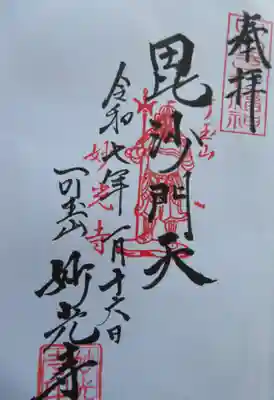 奉拝
毘沙門天
令和七年一月十六日
妙光寺
妙光寺